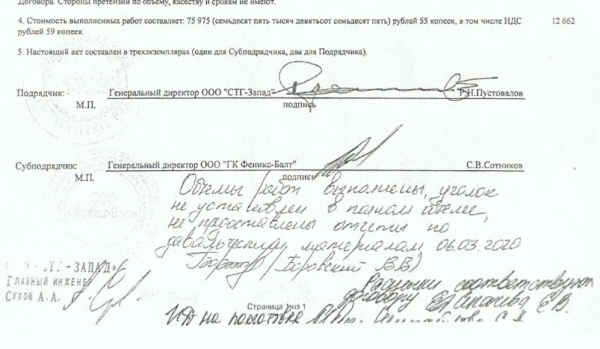 Договора. Стороны претензий по объему, качеству и срокам не имеют.
4. Стоимость выполненных работ составляет: 75 975 (семьдесят пять тысяч девятьсот семьдесят пять) рублей 55 копеек, в том числе НДС 12 662
рублей 59 копеек.
5. Настоящий акт составлен в трех экземплярах (один для Субподрядчика, два для Подрядчика).
Подрядчик: Генеральный директор ООО "СТГ-Запад" Р.Н.Пустовалов
М.П. подпись
Субподрядчик: Генеральный директор ООО "ГК Феникс-Балт" С.В.Сотников
М.П. подпись
Объемы работ выполнены, уголок
не установлен в полном объеме,
не предоставлены отчеты по
давальческим материалам 06.03.2020
(Боровский В.В)
"СТГ-ЗАПАД"
ГЛАВНЫЙ ИНЖЕНЕР
СУХОВ А.А.
Расценки соответствуют
договору Е.В.
Страница 1 из 1
ИД на